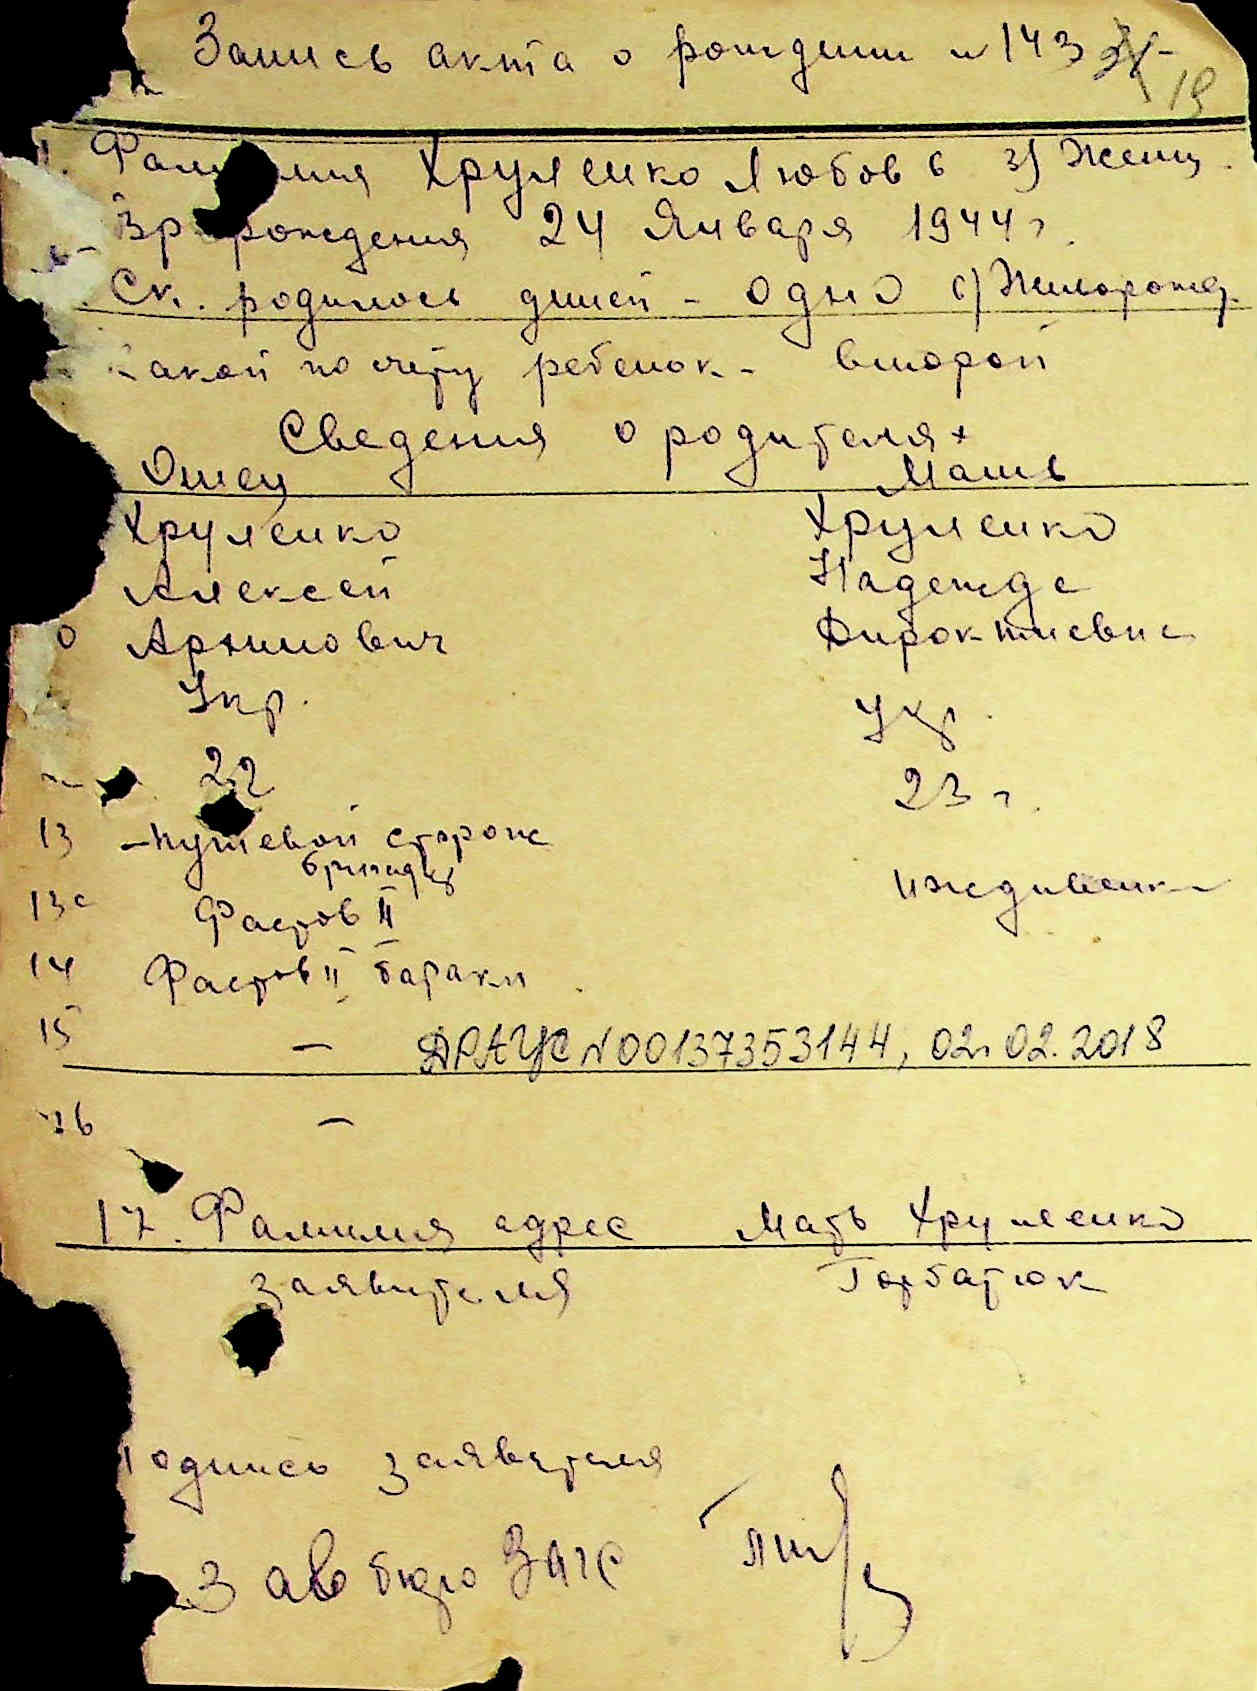 Запись акта о рождении № 143
19
Фамилия Хруленко Любовь 3) Женщ.
Вр рождения 24 Января 1944 г.
Ск. родилось детей - одно 6) Живорожд.
Какой по счёту ребенок - второй
Сведения о родителях
Отец Мать
Хруленко Хруленко
Алексей Надежда
Укр. Укр.
22 23 г.
13 - путевой сторож
бригадир
13а Фастов II иждивенка
14 Фастов II бараки
15 - ДРАЦС №00137353144, 02.02.2018
16 -
17. Фамилия адрес Мать Хруленко
заявителя Горбатюк
Подпись заявителя
Зав бюро ЗАГС